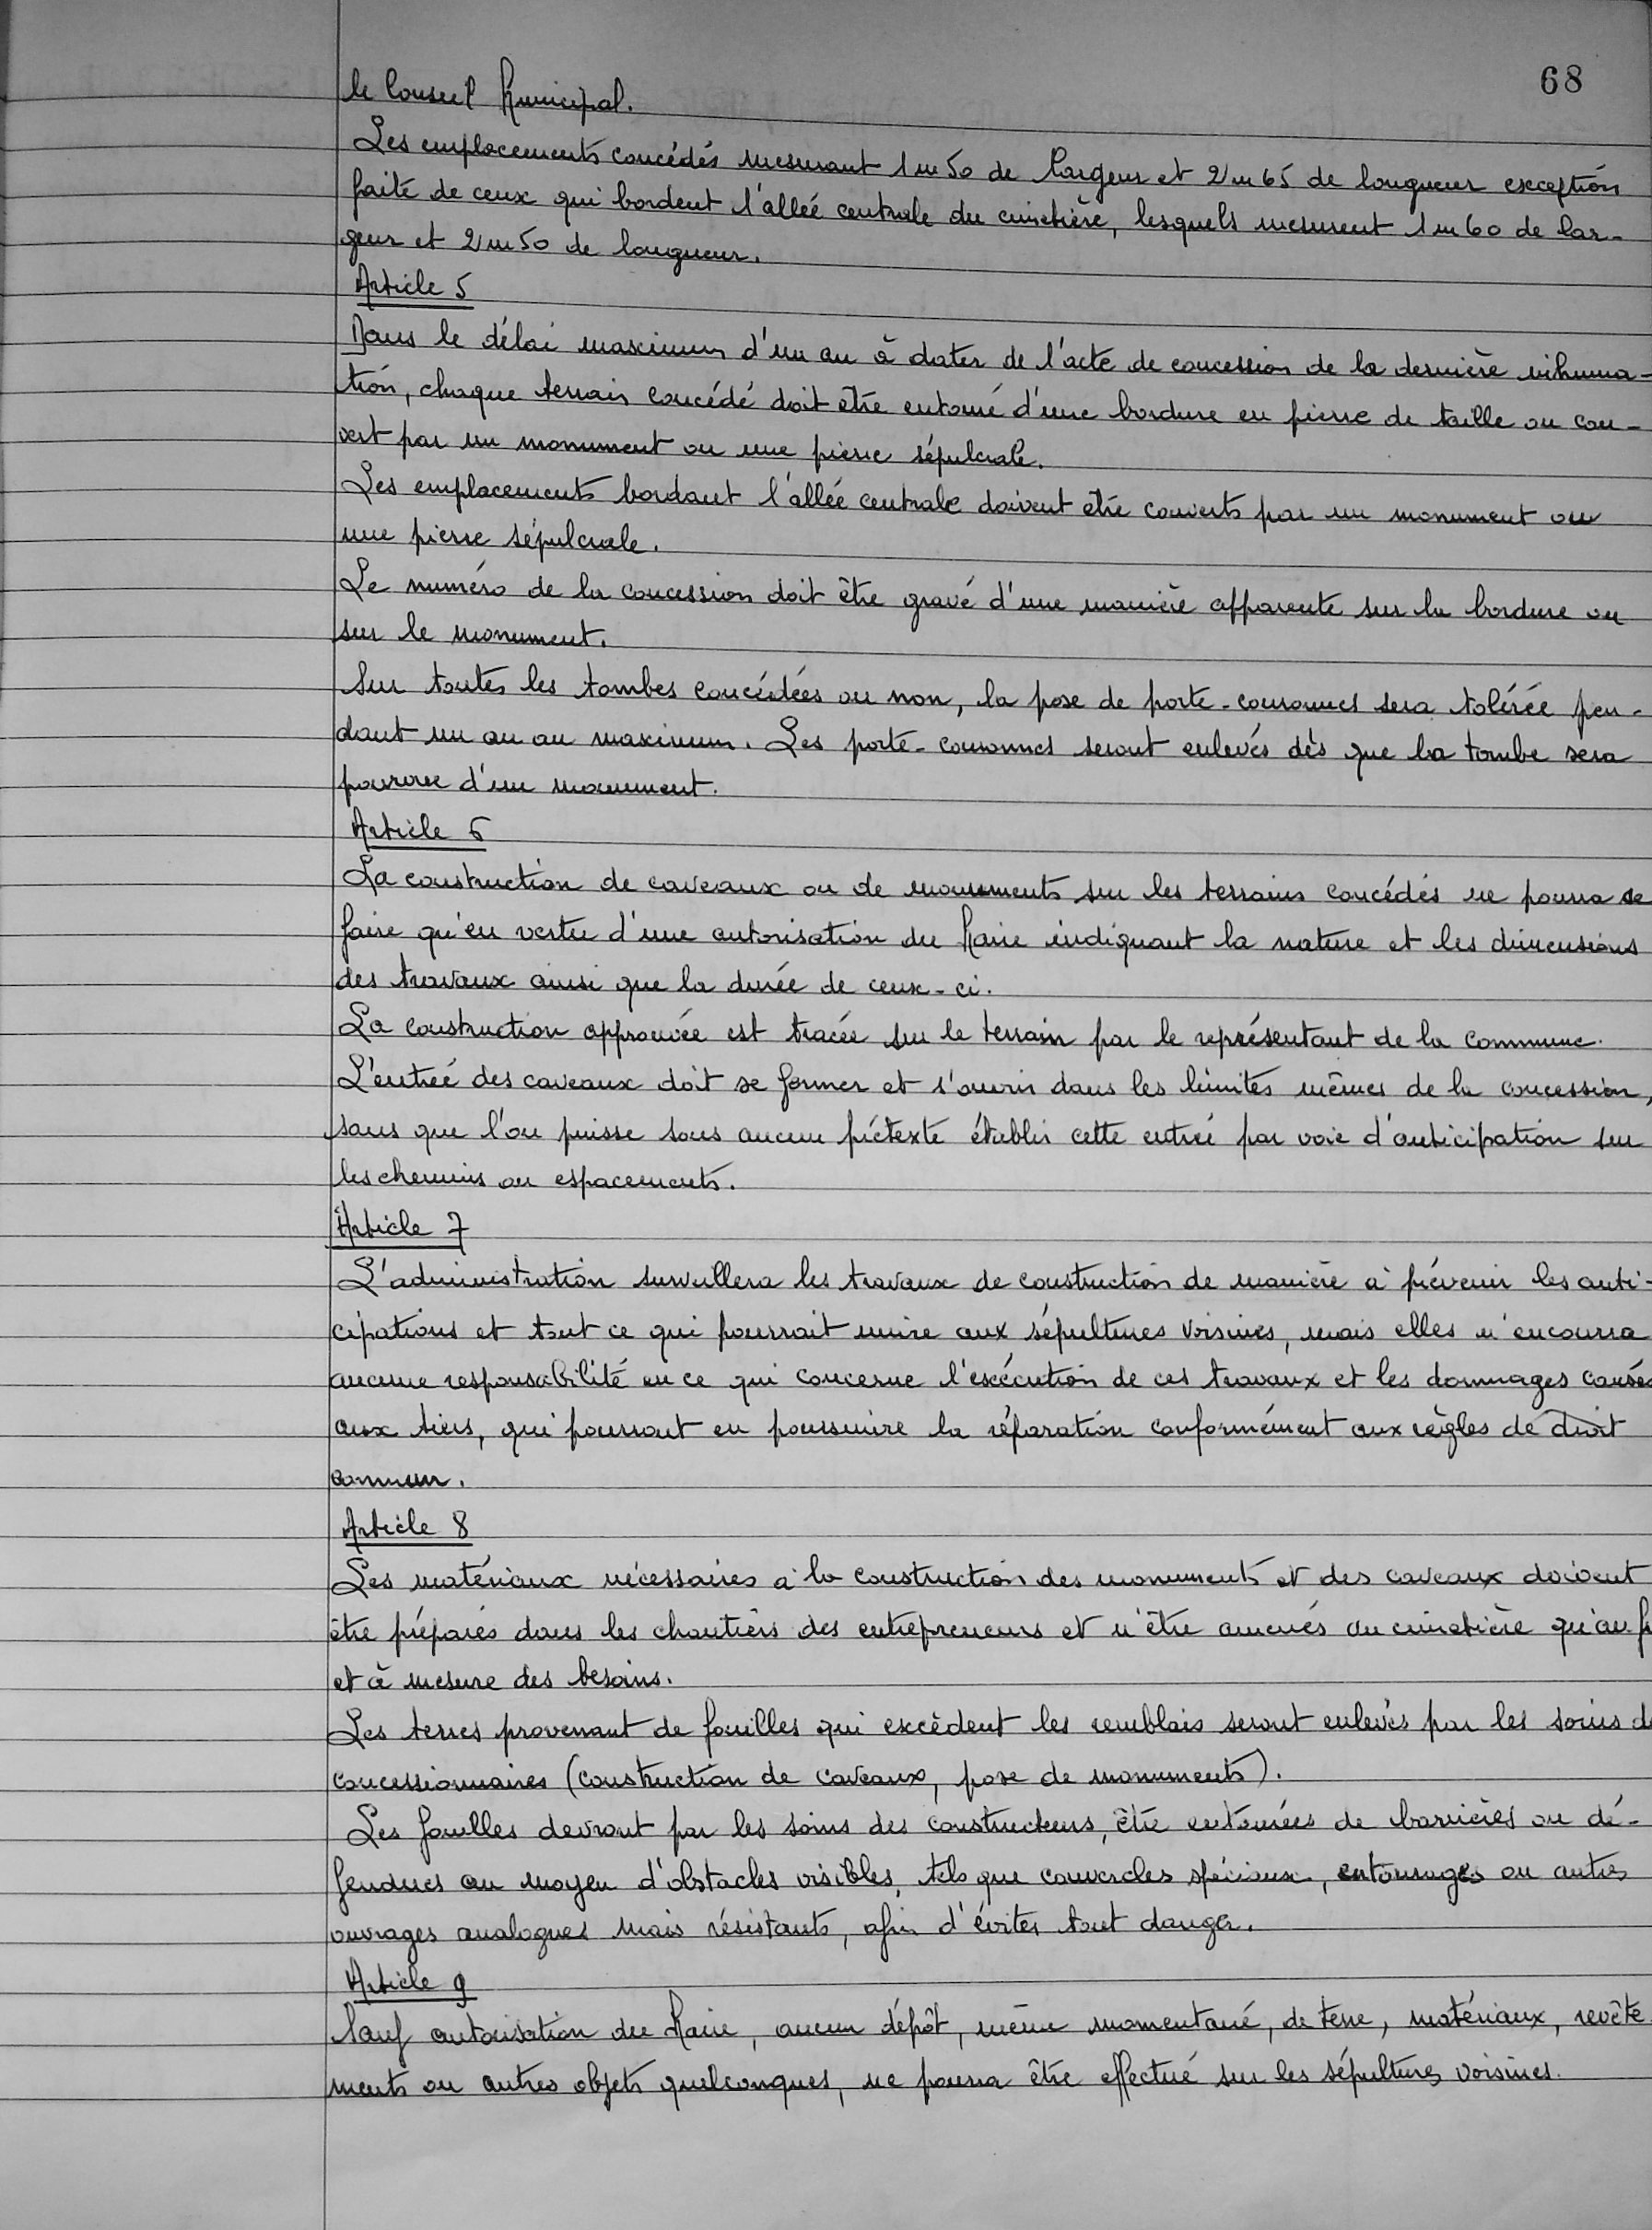 68
le Conseil Municipal.
Les emplacements concédés mesurant 1m50 de largeur et 2m65 de longueur exception
faite de ceux qui bordent l'allée centrale du cimetière, lesquels mesurent 1m60 de lar-
geur et 2m50 de longueur.
Article 5
Dans le délai maximum d'un an à dater de l'acte de concession de la dernière inhuma-
tion, chaque terrain concédé doit être entouré d'une bordure en pierre de taille ou cou-
vert par un monument ou une pierre sépulcrale.
Les emplacements bordant l'allée centrale doivent être couverts par un monument ou
une pierre sépulcrale.
Le numéro de la concession doit être gravé d'une manière apparente sur la bordure ou
sur le monument.
Sur toutes les tombes concédées ou non, la pose de porte-couronnes sera tolérée pen-
dant un an au maximum. Les porte-couronnes seront enlevés dès que la tombe sera
pourvue d'un monument.
Article 6
La construction de caveaux ou de monuments sur les terrains concédés ne pourra se
faire qu'en vertu d'une autorisation du Maire indiquant la nature et les dimensions
des travaux ainsi que la durée de ceux-ci.
La construction approuvée est tracée sur le terrain par le représentant de la commune.
L'entrée des caveaux doit se fermer et s'ouvrir dans les limites mêmes de la concession,
sans que l'on puisse sous aucun prétexte établir cette entrée par voie d'anticipation sur
les chemins ou espacements.
Article 7
L'administration surveillera les travaux de construction de manière à prévenir les anti-
cipations et tout ce qui pourrait nuire aux sépultures voisines, mais elles n'encourra
aucune responsabilité en ce qui concerne l'exécution de ces travaux et les dommages causés
aux tiers, qui pourront en poursuivre la réparation conformément aux règles de droit
commun.
Article 8
Les matériaux nécessaires à la construction des monuments et des caveaux doivent
être préparés dans les chantiers des entrepreneurs et n'être amenés au cimetière qu'au f
et à mesure des besoins.
Les terres provenant de fouilles qui excèdent les remblais seront enlevés par les soins d
concessionnaires (construction de caveaux, pose de monuments).
Les fouilles devront par les soins des constructeurs, être entourées de barrières ou dé-
fendues au moyen d'obstacles visibles, tels que couvercles spéciaux, entourages ou autres
ouvrages analogues mais résistants, afin d'éviter tout danger.
Article 9
Sauf autorisation du Maire, aucun dépôt, même momentané, de terre, matériaux, revête-
ments ou autres objets quelconques, ne pourra être effectué sur les sépultures voisines.